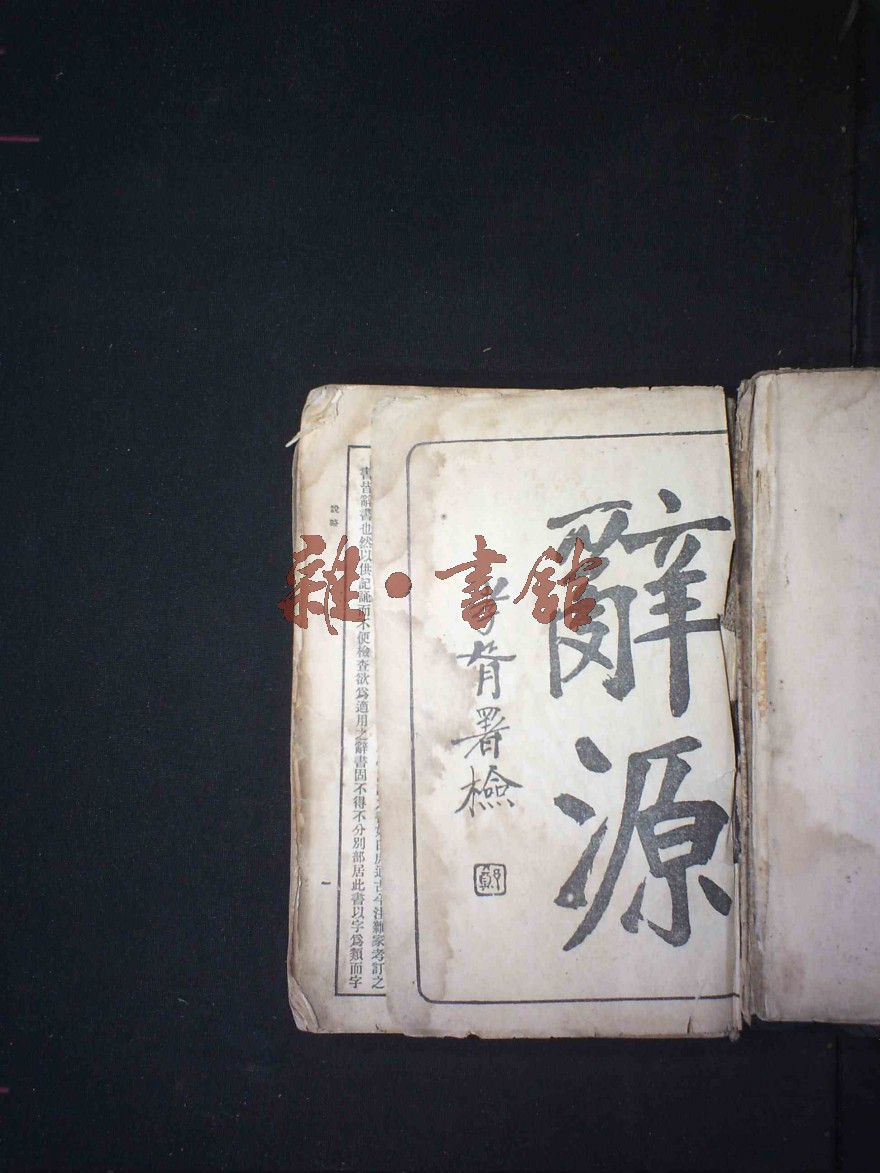 辭源
孝胥署檢
鄭
雜·書館
古今注雜家考訂之
書皆辭書也然以供記誦而不便檢查欲爲適用之辭書固不得不分別部居此書以字爲類而字
說略
一